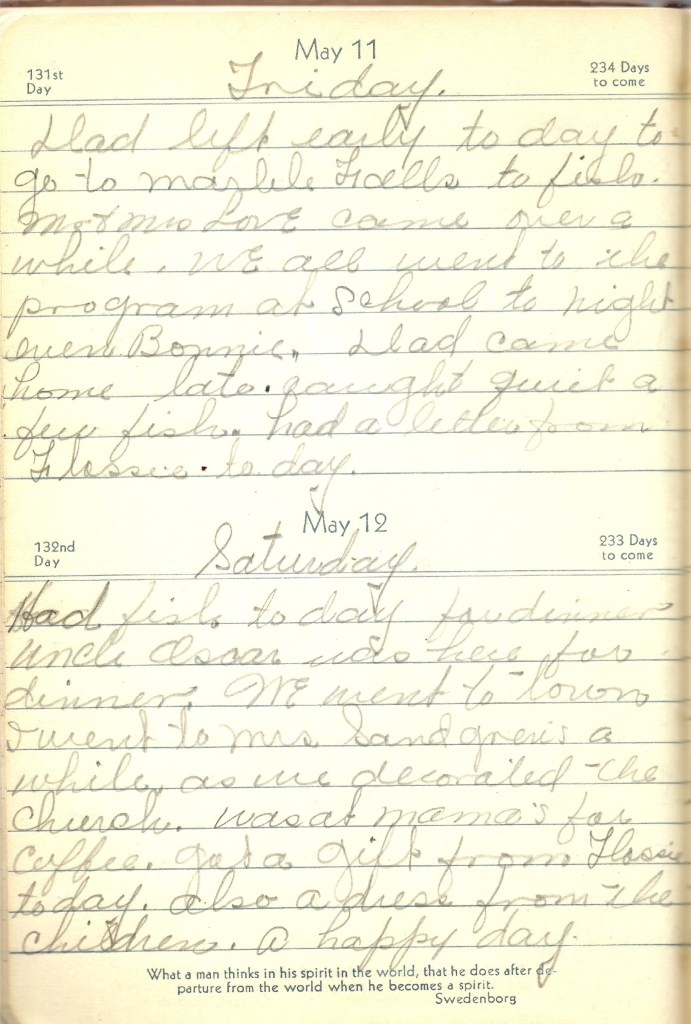 May 11
131st
Day
234 Days
to come
Friday.
Dad left early to day to
go to marble Falls to fish.
Mr & Mrs Love came over a
while. WE all went to the
program at School to night
even Bonnie. Dad came
home late. caught quiet a
few fish. had a letter from
Flossie to day.
May 12
132nd
Day
233 Days
to come
Saturday.
Had fish to day for dinner
Uncle Oscar was here for
dinner. WE went to town
I went to Mrs Sandgren's a
while, as we decorated the
Church. was at mama's for
coffee. got a gift from Flossie
today. also a dress from the
children. a happy day.
What a man thinks in his spirit in the world, that he does after de-
parture from the world when he becomes a spirit.
Swedenborg